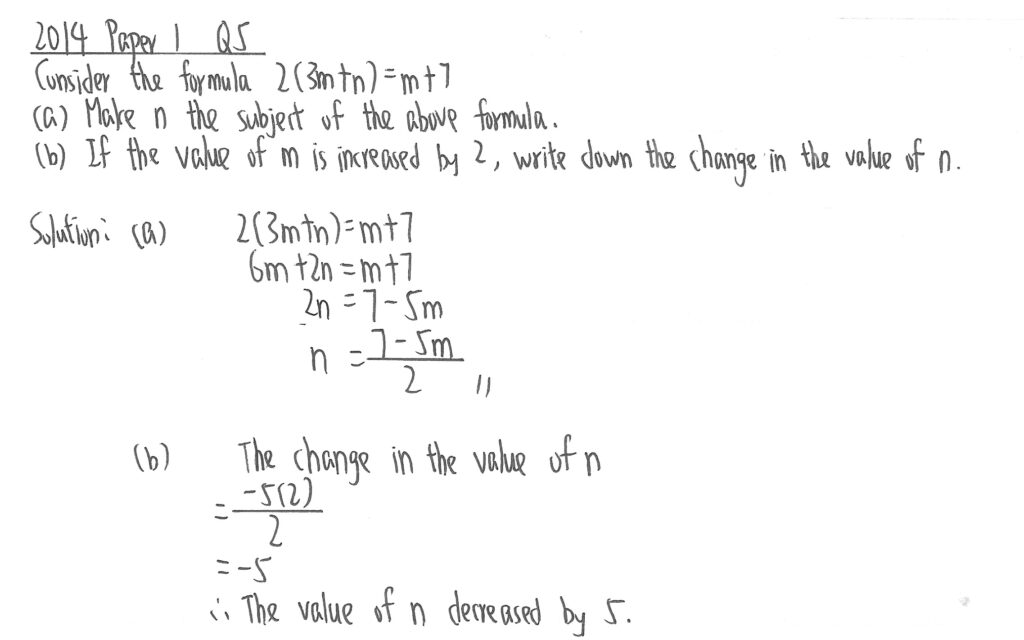 2014 Paper 1 Q5
Consider the formula 2(3m+n)=m+7
(a) Make n the subject of the above formula.
(b) If the value of m is increased by 2, write down the change in the value of n.
Solution: (a) 2(3m+n)=m+7
6m+2n=m+7
2n=7-5m
n=\frac{7-5m}{2} //
(b) The change in the value of n
=\frac{-5(2)}{2}
=-5
∴ The value of n decreased by 5.